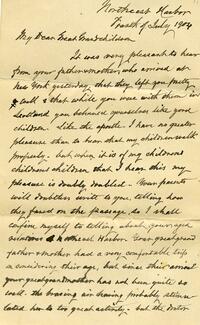 Northeast Harbor
Fourth of July 1904
My Dear Great Grandchildren
It was very pleasant to hear
from your father & mother, who arrived at
New York yesterday, that they left you pretty
well & that while you were with them in
Scotland you behaved yourselves like good
children. Like the apostle, I have no greater
pleasure than to hear that my children walk
properly. but when it is of my childrens
childrens children that I hear this my
pleasure is doubly doubled. Your parents
will doubtless write to you, telling how
they fared on the passage so I shall
confine myself to telling about your aged
at Northeast Harbor. Your great grand
father & mother had a very comfortable trip
considering their age, but since their arrival
your great grandmother has not been quite so
well. the bracing air having probably stimu
lated her to too great activity. but the doctor